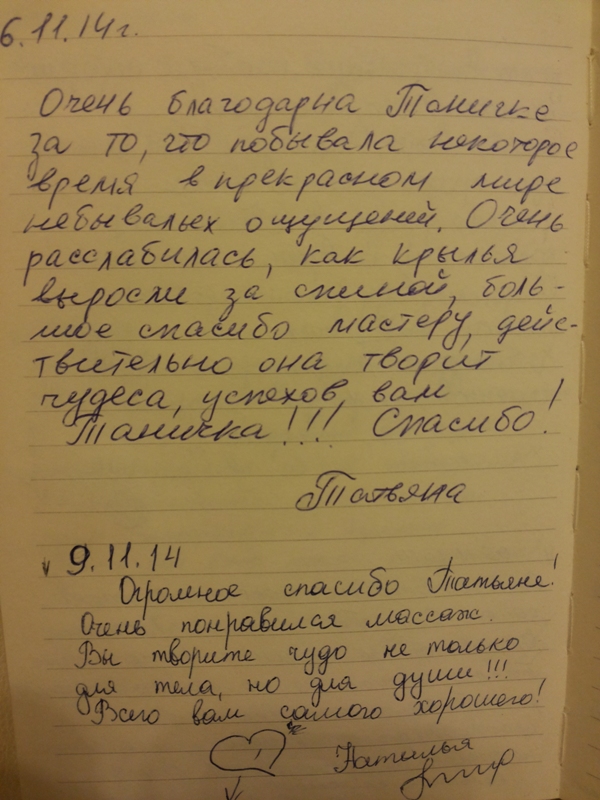 6.11.14г.
Очень благодарна Таничке
за то, что побывала некоторое
время в прекрасном мире
небывалых ощущений. Очень
расслабилась, как крылья
выросли за спиной, боль-
шое спасибо мастеру, дейс-
твительно она творит
чудеса, успехов вам
Таничка!!! Спасибо!
Татьяна
9.11.14
Огромное спасибо Татьяне!
Очень понравился массаж.
Вы творите чудо не только
для тела, но для души!!!
Всего вам самого хорошего!
Наталья